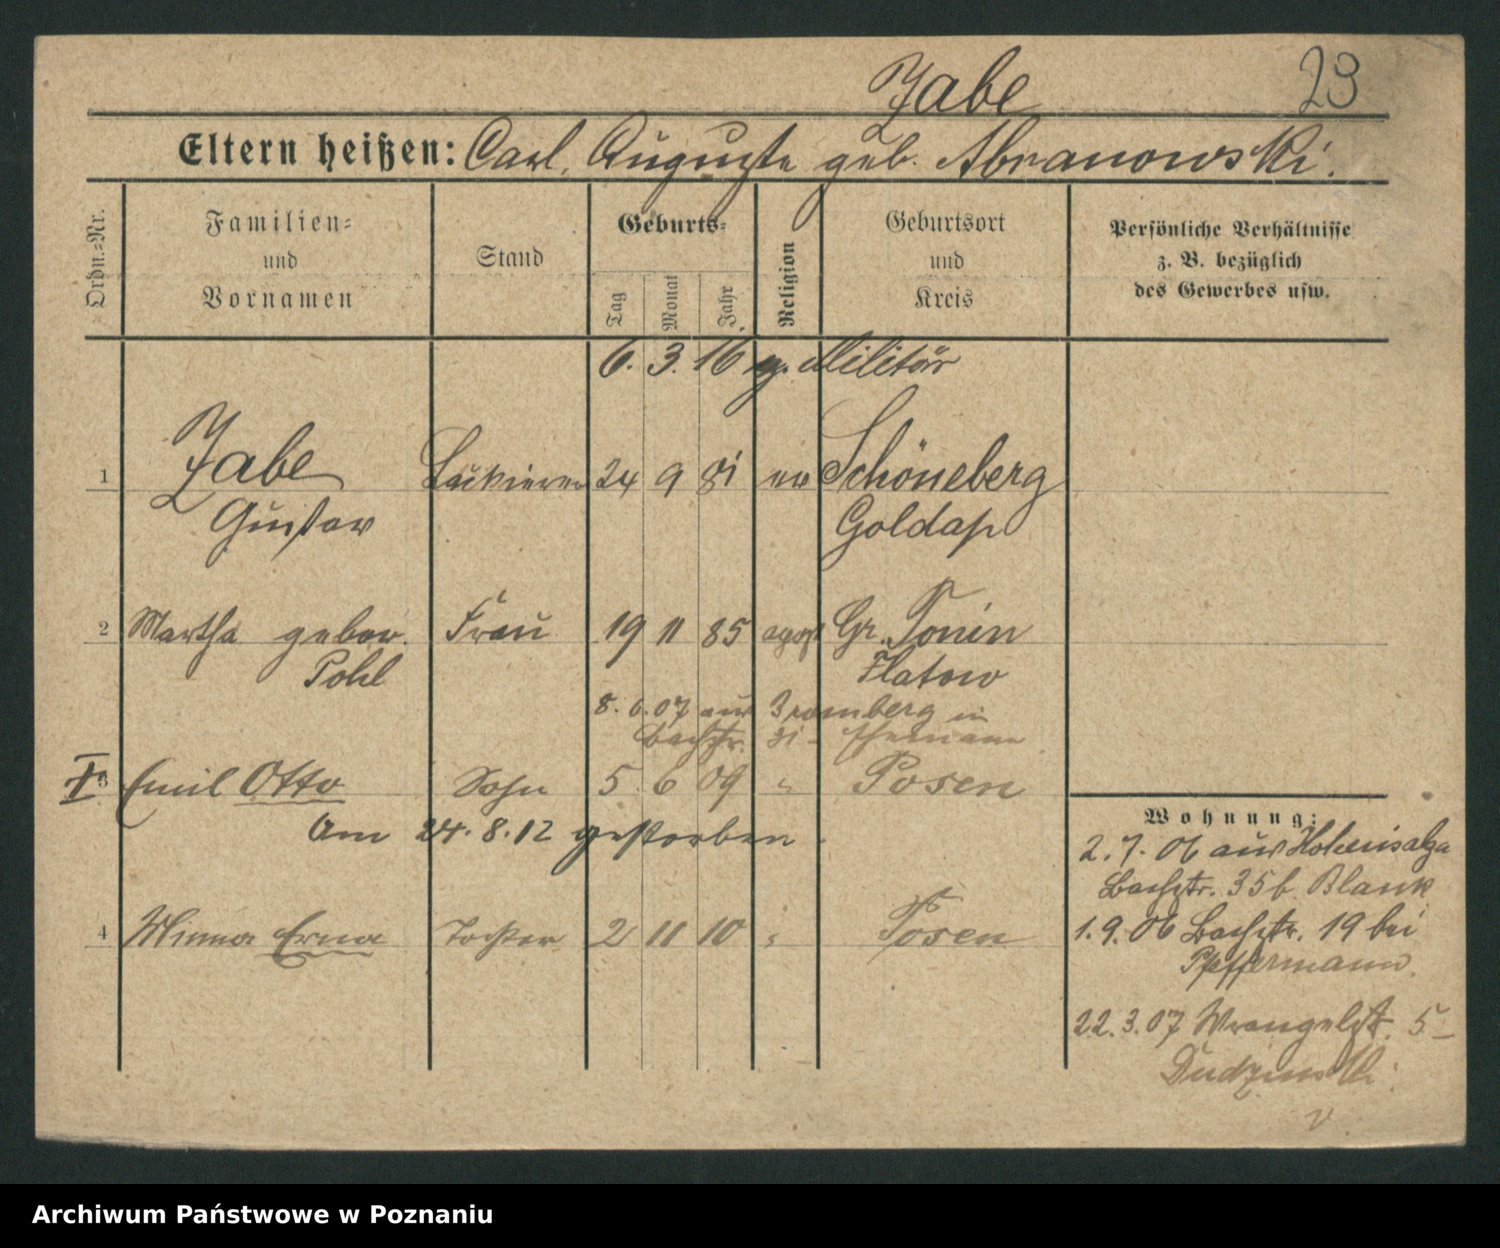 Jabe 23
Eltern heißen: Carl, Auguste geb. Abranowski.
Ordn.=Nr.
Familien=
und
Vornamen
Stand
Geburts=
Tag
Monat
Jahr
Religion
Geburtsort
und
Kreis
Persönliche Verhältnisse
z. B. bezüglich
des Gewerbes usw.
6. 3. 16 z. Militär
1 Jabe 24 9 81 ev Schöneberg
Gustav Goldap
2 Martha gebor. Frau 19 11 85 apost Gr. Tonin
Pohl Flatow
8. 6. 07 aus Bromberg in
Bachstr. 31
† 3 Emil Otto Sohn 5 6 09 " Posen
Am 24. 8. 12 gestorben.
4 Minna Erna Tochter 2 11 10 " Posen
Wohnung:
2. 7. 06 aus Hohensalza
Bachstr. 35b. Blank
1. 9. 06 Bachstr. 19 bei
Pfeffermann.
22. 3. 07 Wrangelstr. 5 -
Dudzinski.
Archiwum Państwowe w Poznaniu